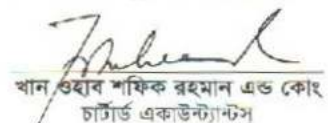 খান ওহাব শফিক রহমান এন্ড কোং
চার্টার্ড একাউন্ট্যান্টস